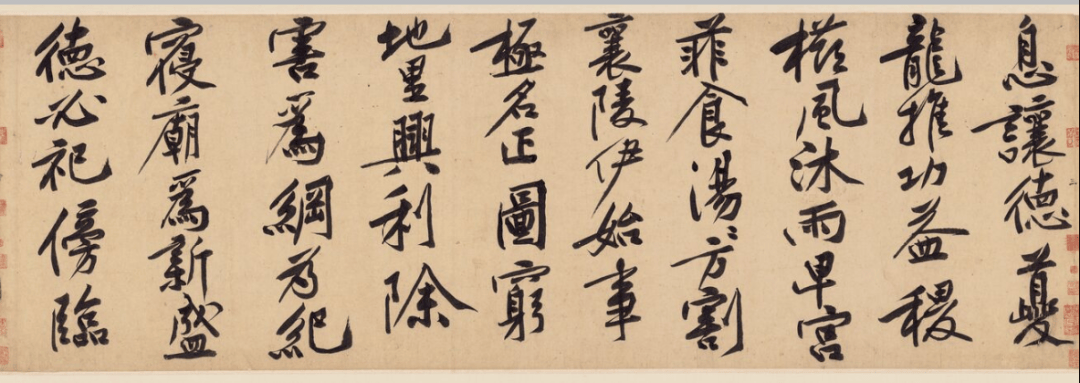 息讓德夔
龍推功益稷
櫛風沐雨卑宮
菲食湯〻方割
襄陵伊始事
極名正圖窮
地里興利除
害爲綱爲紀
寢廟爲新盛
德必祀傍臨